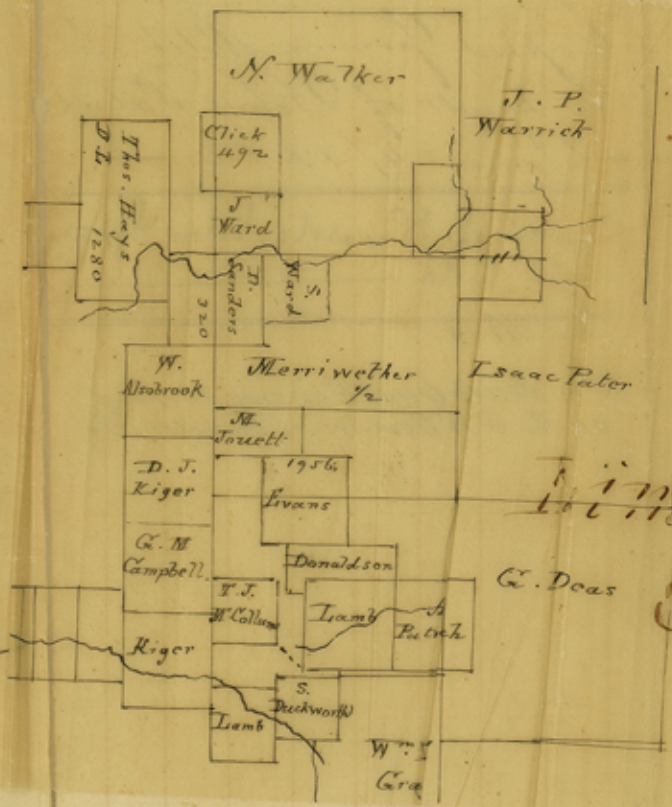 N. Walker
J. P.
Warrich
Click
492
Thos. Hays
D L 1280
J
Ward
D.
Sanders
320
S.
Ward
W.
Alsobrook
Merriwether
1/2
Isaac Pater
M.
Jouett
D. J.
Kiger
1956
Evans
G. M
Campbell
Donaldson
G. Deas
T. J.
McCollum
Lamb
Patsch
Kiger
S.
Duckworth
Lamb
Gra